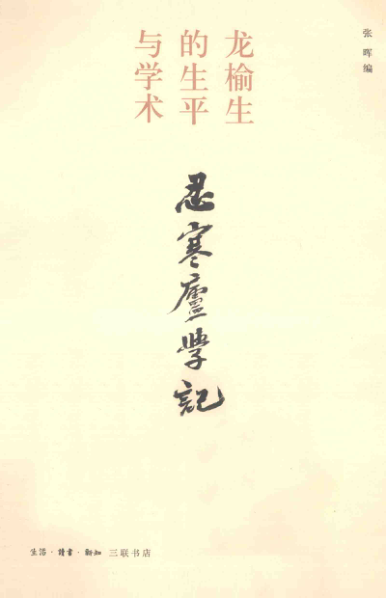 张晖编
龙榆生
的生平
与学术
忍寒廬學記
生活·讀書·新知 三联书店